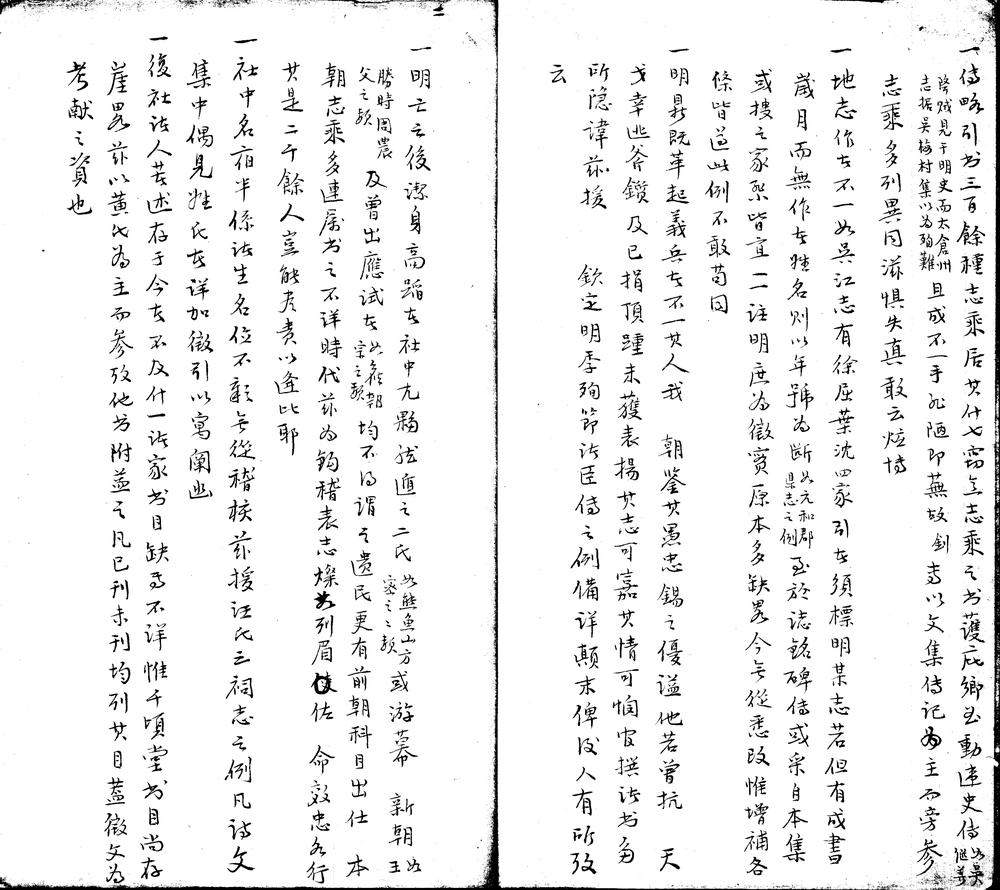 一傳略引书三百餘種志乘居其什七窃〻志乘之书護庇鄉〻動違史傳如吳継善
降賊見于明史而太倉州志据吳梅村集以為殉難且成不一手非陋即蕪故〻专以文集傳記為主而旁参
志乘多列異同滋懼失真敢云炫博
一地志作者不一如吳江志有徐屈葉沈四家引者須標明某志若但有成書
歲月而無作者姓名則以年號為断如元和郡县志之例至於誌銘碑傳或采自本集
或搜之家乘皆宜一一註明庶為徵實原本多缺畧今無從悉改惟增補各
條皆遵此例不敢苟同
一明鼎既革起義兵者不一其人我 朝鉴其愚忠錫之優諡他若曾抗 天
戈幸逃斧鑕及已捐頂踵未獲表揚其志可嘉其情可憫官撰诸书多
所隐諱茲援 欽定明季殉節诸臣傳之例備详颠末俾後人有所攷
云
一明亡之後潔身高蹈者社中尤夥然遁之二氏如熊鱼山方密之之類或游幕 新朝如王
勝時周農父之類及曾出應試者如侯朝宗之類均不得謂之遺民更有前朝科目出仕 本
朝志乘多連屬书之不详時代茲為鉤稽表志燦如列眉佐 命效忠各行
其是二千餘人豈能尽责以逢比耶
一社中名宿半係诸生名位不彰無從稽核茲援汪氏三祠志之例凡詩文
集中偶見姓氏者详加徵引以寓闡幽
一復社诸人著述存于今者不及什一诸家书目缺焉不详惟千頃堂书目尚存
崖畧茲以黄氏為主而参攷他书附益之凡已刊未刊均列其目蓋徵文為
考献之資也